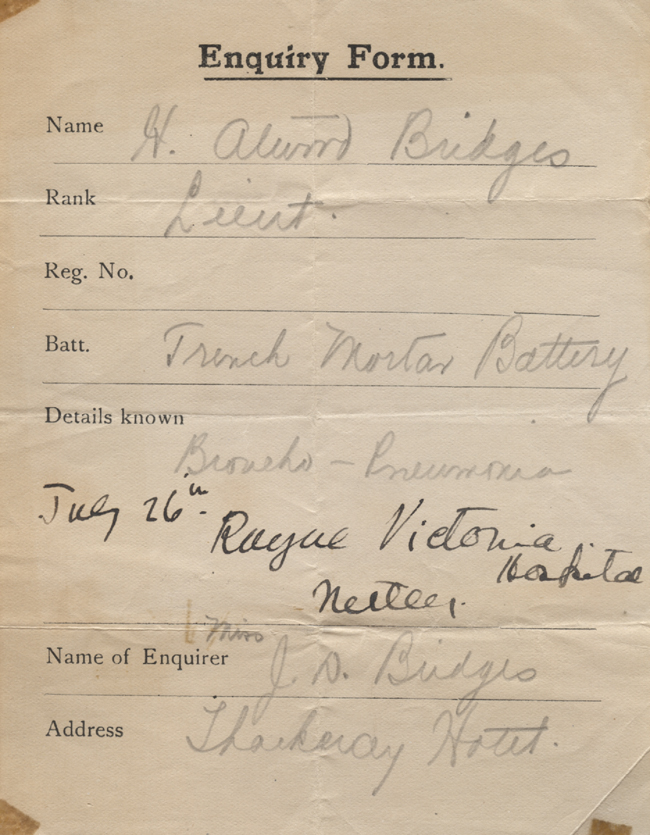 Enquiry Form.
Name H. Atwood Bridges
Rank Lieut.
Reg. No.
Batt. Trench Mortar Battery
Details known
Broncho-Pneumonia
July 26th. Royal Victoria
Hospital
Netley.
Miss
Name of Enquirer J. D. Bridges
Address Thackeray Hotel.